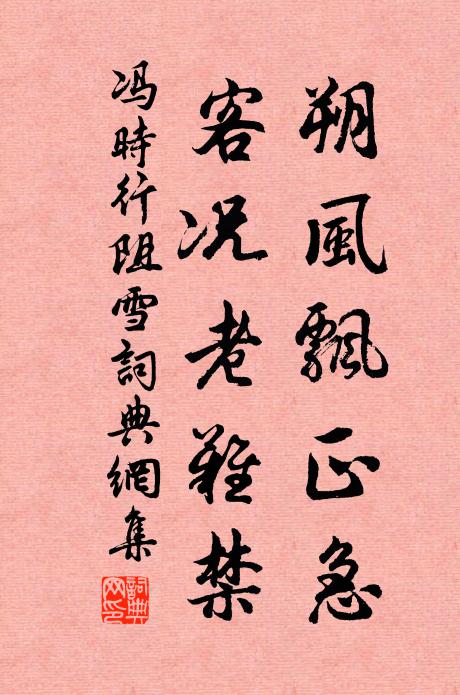 朔風飄正急
客况老難禁
冯時行阻雪詞典網集
詞典網印